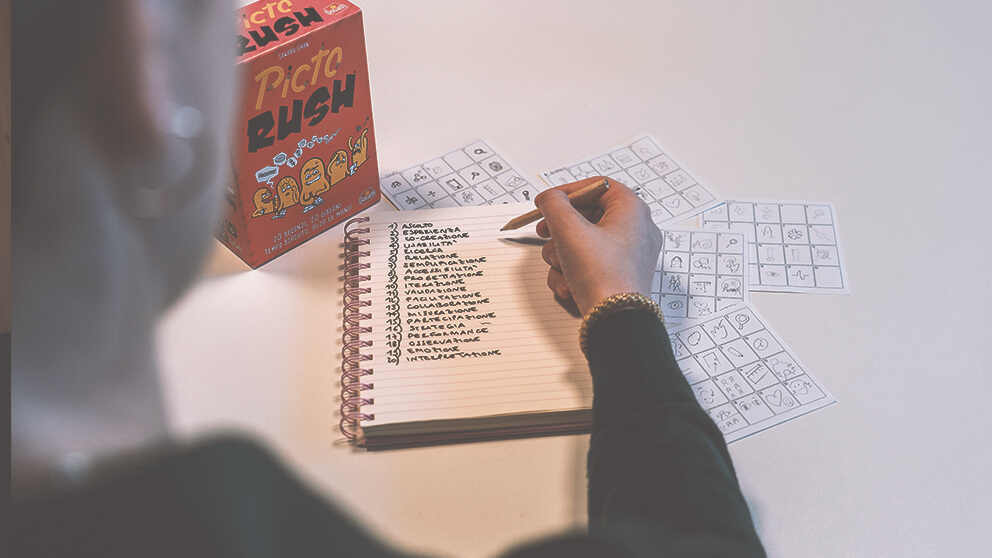 PICTO
RUSH
PICTO
RUSH
20 SECONDI, 20 DISEGNI
TEMPO SCADUTO, ALZA LE MANI!
1 ASCOLTO
2 ESPERIENZA
3 CO-CREAZIONE
4 USABILITA'
5 RICERCA
6 RELAZIONE
7 SEMPLIFICAZIONE
8 ACCESSIBILITA'
9 PROGETTAZIONE
10 ITERAZIONE
11 VALIDAZIONE
12 FACILITAZIONE
13 COLLABORAZIONE
14 MISURAZIONE
15 PARTECIPAZIONE
16 STRATEGIA
17 PERFORMANCE
18 OSSERVAZIONE
19 EMOZIONE
20 INTERPRETAZIONE